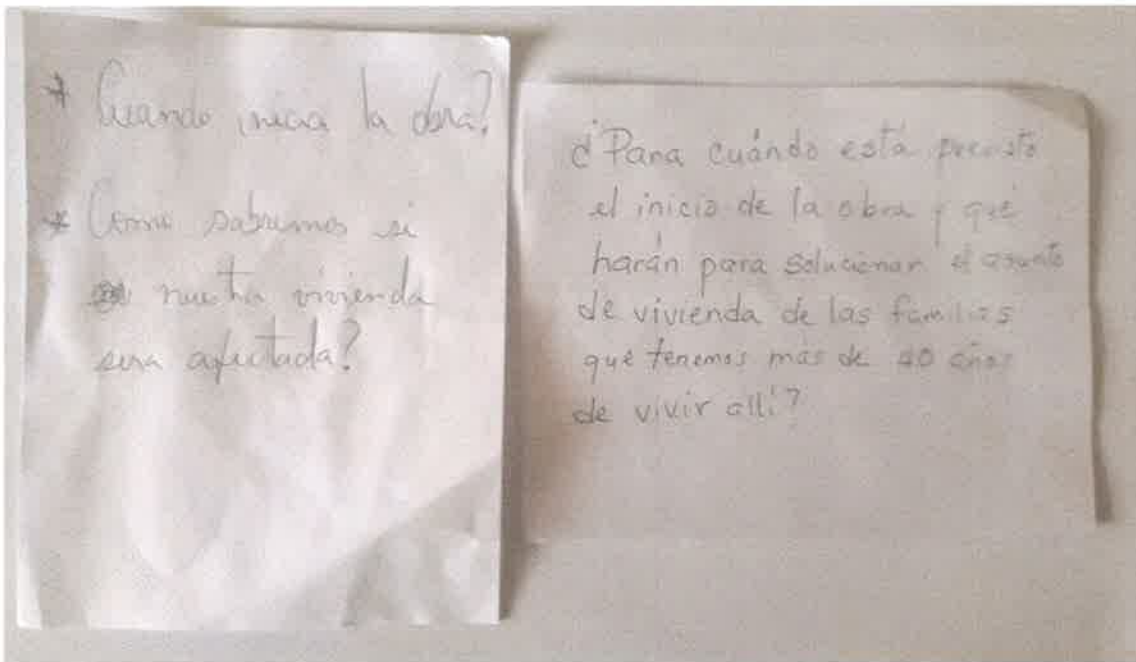 * Cuando inicia la obra?
* Como sabremos si
nuestra vivienda
sera afectada?
¿Para cuándo está previsto
el inicio de la obra y qué
harán para solucionar el asunto
de vivienda de las familias
que tenemos más de 40 años
de vivir allí?